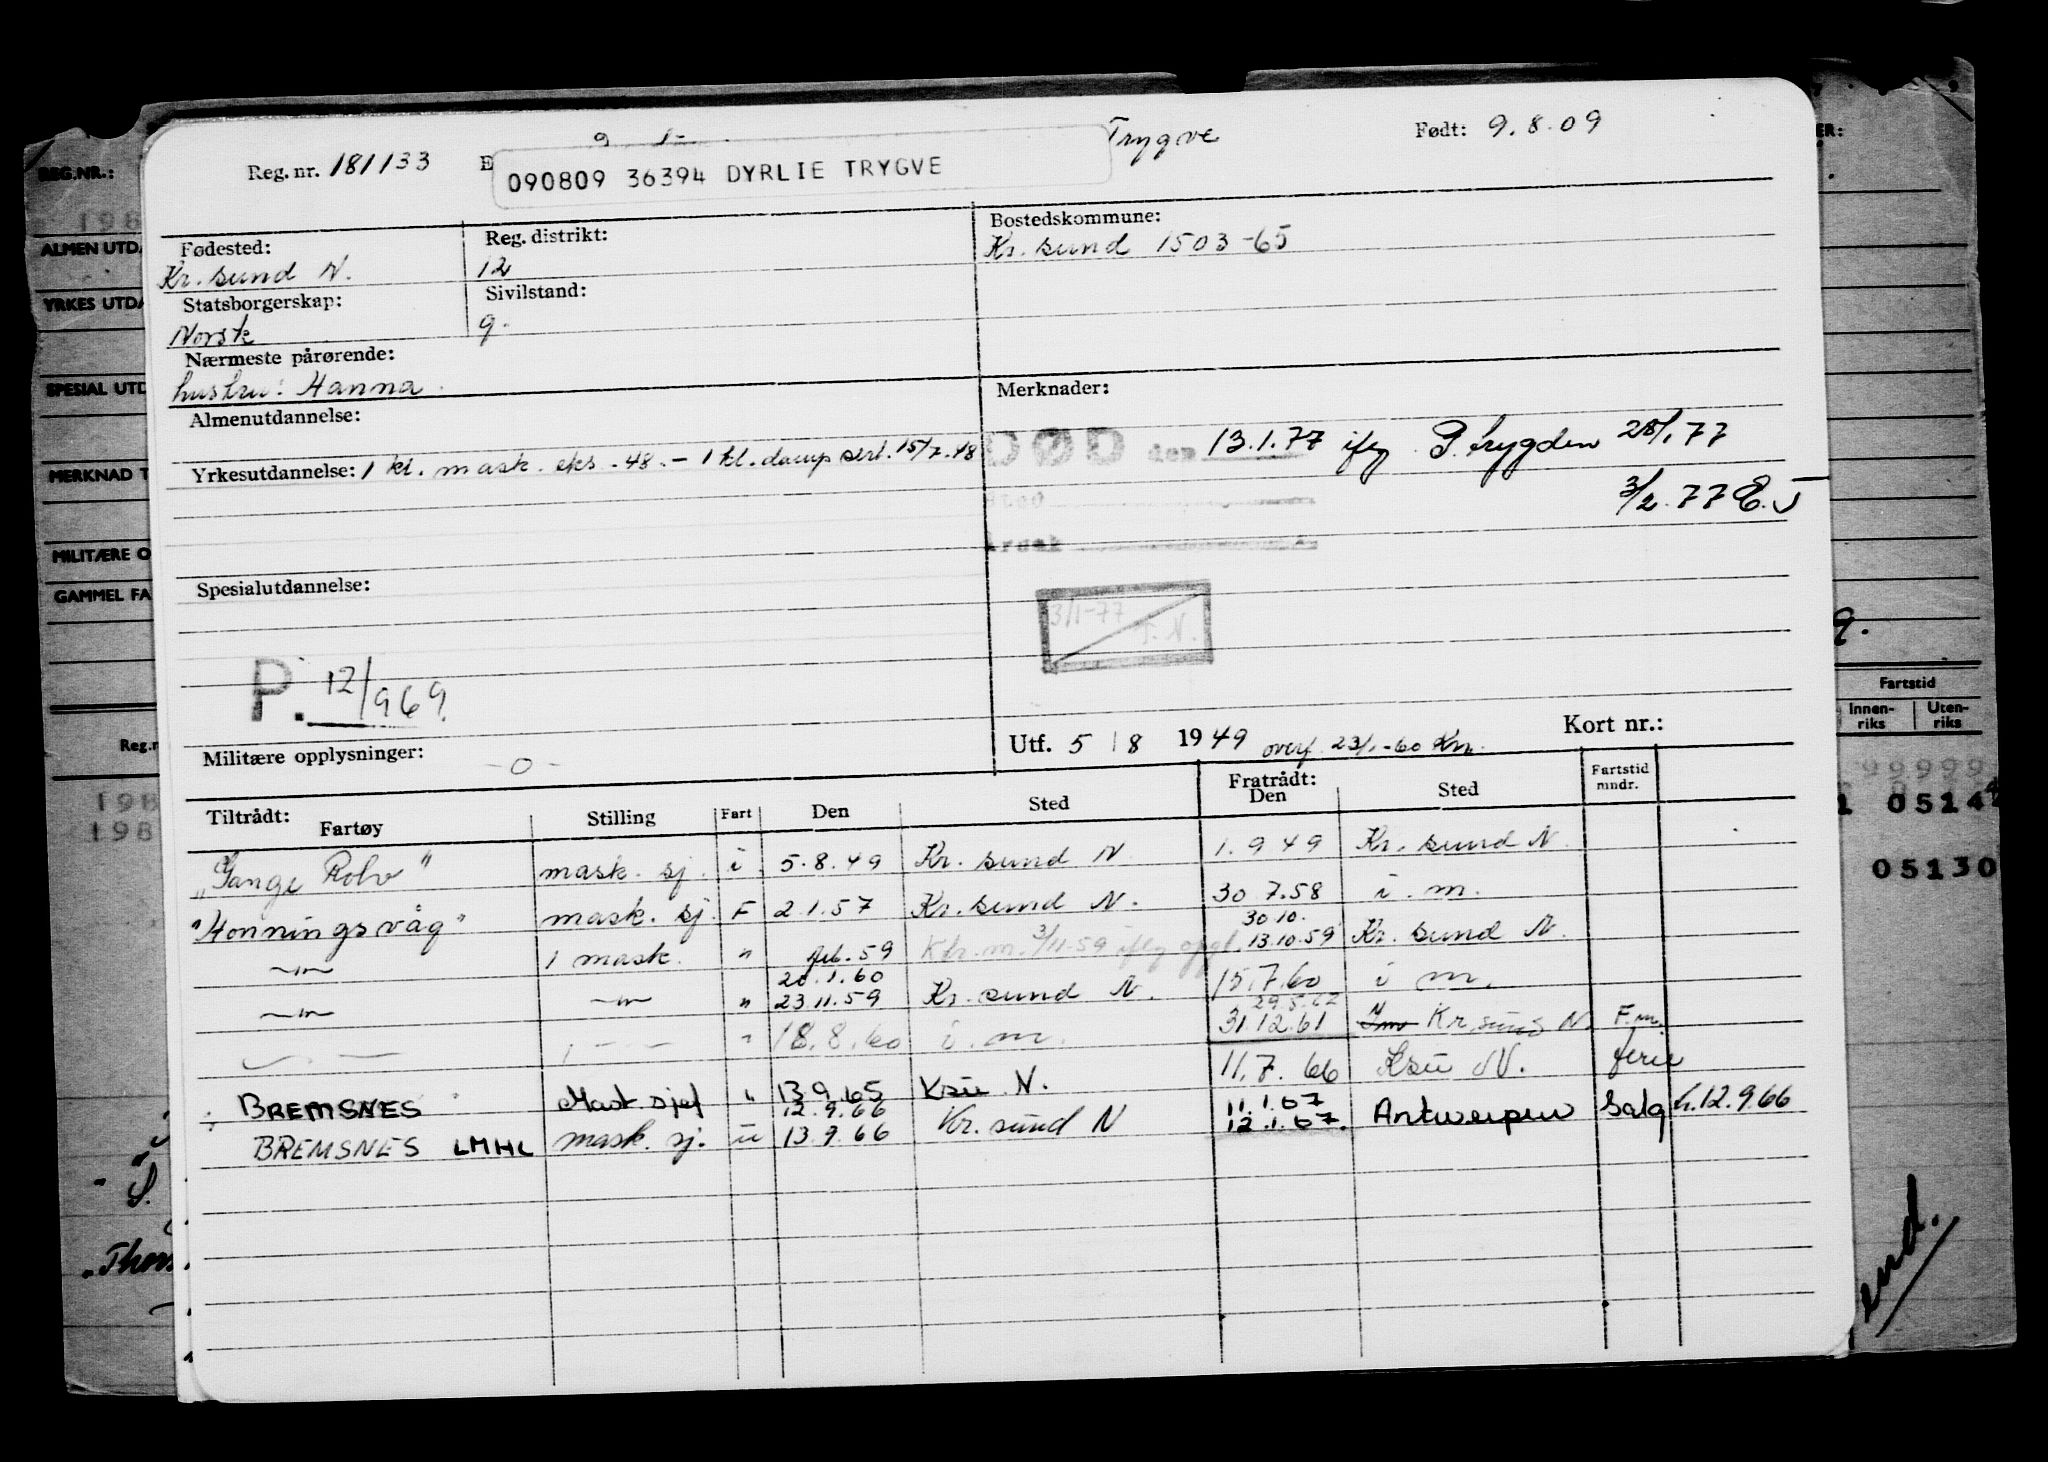 Reg. nr. 181133
090809 36394 DYRLIE TRYGVE
Trygve
Født: 9.8.09
Fødested:
Kr. sund N.
Reg. distrikt:
12
Bostedskommune:
Kr. sund 1503-65
Statsborgerskap:
Norsk
Sivilstand:
g.
Nærmeste pårørende:
hustru: Hanna
Almenutdannelse:
Yrkesutdannelse: 1 kl. mask. eks. -48. - 1 kl. damp sert. 15/7-48
Merknader:
DØD den 13.1.77 ifg P. trygden 28/1 77
3/2.77 E.J
3/1-77
Spesialutdannelse:
P. 12/969.
Militære opplysninger:
-0-
Utf. 5/8 1949 overf. 23/1-60 Kr.
Kort nr.:
Tiltrådt: Fartøy Stilling Fart Den Sted Fratrådt: Den Sted Fartstid mndr.
"Gange Rolv" mask. sj. i. 5.8.49 Kr. sund N 1.9 49 Kr. sund N.
"Honningsvåg" mask. sj. F 2.1.57 Kr. sund N. 30 7.58 i. m.
30 10.
—"— 1 mask. " feb. 59 3/11-59 iflg oppl. 13.10.59 Kr. sund N.
20.1.60
—"— —"— " 23.11.59 Kr. sund N. 15.7.60 i m.
29.5.62
" 18.8.60 i. m. 31.12.61 Kr. sund N. F.m.
BREMSNES Mask. sjef " 13 9.65 Ksu N. 11.7.66 Ksu N. ferie
12.9.66 11.1.67
BREMSNES LMHL mask. sj. u 13.9.66 Kr. sund N 12.1.67. Antwerpen Salg t. 12.9.66
REG.NR.:
198
ALMEN UTD
YRKES UTDA
SPESIAL UTD
MERKNAD T
MILITÆRE O
GAMMEL FA
Reg.n
198
198
Fartstid
Innen-riks
Uten-riks
99999
05144
05130